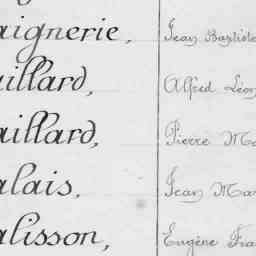 aignerie, Jean Baptiste
aillard, Alfred Léon
aillard, Pierre Ma
alais, Jean Mar
alisson, Eugène Fra